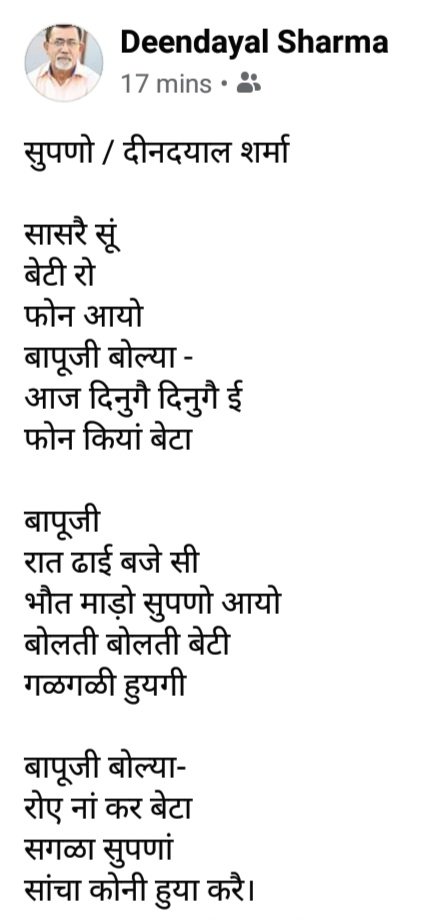 Deendayal Sharma
17 mins •
सुपणो / दीनदयाल शर्मा
सासरै सूं
बेटी रो
फोन आयो
बापूजी बोल्या -
आज दिनुगै दिनुगै ई
फोन कियां बेटा
बापूजी
रात ढाई बजे सी
भौत माड़ो सुपणो आयो
बोलती बोलती बेटी
गळगळी हुयगी
बापूजी बोल्या-
रोए नां कर बेटा
सगळा सुपणां
सांचा कोनी हुया करै।